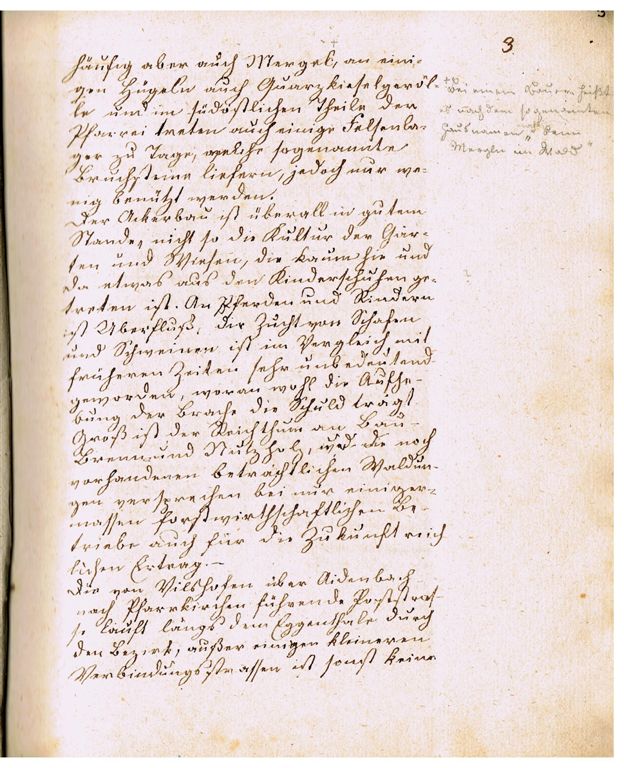 3
häufig aber auch Mergel, an eini-
gen Hügeln auch Quarzkieselgeröl-
le und im südöstlichen Theile der
Pfarrei treten auch einige Felsenla-
ger zu Tage, welche sogenannte
Bruchsteine liefern, jedoch nur we-
nig benützt werden.
Der Ackerbau ist überall in gutem
Stande, nicht so die Kultur der Gär-
ten und Wiesen, die kaum hie und
da etwas aus den Kinderschuhen ge-
treten ist. An Pferden und Rindern
ist Überfluß, die Zucht von Schafen
und Schweinen ist im Vergleich mit
früheren Zeiten sehr unbedeutend
geworden, woran wohl die Aufhe-
bung der Brache die Schuld trägt.
Groß ist der Reichthum an Bau-
Brenn- und Nutzholz, und die noch
vorhandenen beträchtlichen Waldun-
gen versprechen bei nur einiger-
massen forstwirthschaftlichen Be-
triebe auch für die Zukunft reich
lichen Ertrag. –
Die von Vilshofen über Aidenbach
nach Pfarrkirchen führende Poststras-
se lauft längs dem Eggenthale durch
den Bezirk, außer einigen kleineren
Verbindungsstrassen ist sonst keine
Bei einem Bauern heißt
es nach dem sogenannten
Hausnamen „beim
Mergln im Wald“